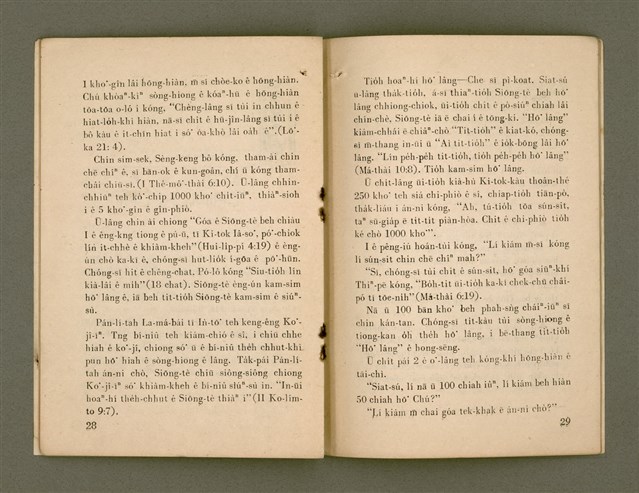 I kho͘-gīn lâi hōng-hiàn, m̄ sī chòe-ko ê hōng-hiàn.
Chú khòaⁿ-kìⁿ sòng-hiong ê kóaⁿ-hū ê hōng-hiàn
tōa-tōa o-ló i kóng, “Chèng-lâng sī tùi in chhun ê
hiat-lo̍h-khì hiàn, nā-sī chit ê hū-jîn-lâng sī tùi i ê
bô kàu ê it-chīn hiat i só͘ òa-khò lâi oa̍h ê”.(Lō͘-
ka 21: 4).
Chīn sim-sek, Sèng-keng bô kóng, tham-ài chîn
chē chîⁿ ê, sī bān-ok ê kun-goân, chí ū kóng tham-
châi chiū-sī.(I Thê-mô͘-thài 6:10). Ū-lâng chhin-
chhiūⁿ teh kò͘-chip 1000 kho͘ chit-iūⁿ, thiàⁿ-sioh
i ê 5 kho͘-gîn ê gîn-phiò.
Ū-lâng chin ài chiong “Góa ê Siōng-tè beh chiàu
I ê êng-kng tiong ê pù-ū, tī Ki-tok Iâ-so͘, pó͘-chiok
lín it-chhè ê khiàm-kheh”(Hui-li̍p-pí 4:19) ê èng-
ún chò ka-kī ê, chóng-sī hut-lio̍k i-gōa ê pō͘-hūn.
Chóng-sī hit ê chêng-chat. Pó-lô kóng “Siu-tio̍h lín
kià-lâi ê mi̍h”(18 chat). Siōng-tè èng-ún kam-sim
hō͘ lâng ê, iā beh tit-tio̍h Siōng-tè kam-sim ê siúⁿ-
sù.
Pán-lí-tah La-má-bái tī Ìn-tō͘ teh keng-êng Ko͘-
jî-īⁿ. Tng bí-niû teh kiàm-chió ê sî, i chiū chhe
hiah ê ko͘-jî, chiong só͘ ū ê bí-niû the̍h chhut-khì
pun hō͘ hiah ê sòng-hiong ê lâng. Ta̍k-pái Pán-lí-
tah án-ni chò, Siōng-tè chiū siông-siông chiong
Ko͘-jî-īⁿ só͘ khiàm-kheh ê bí-niû siúⁿ-sù in. “In-ūi
hoaⁿ-hí the̍h-chhut ê Siōng-tè thiàⁿ i”(II Ko-lîm-
to 9:7).
28
Tio̍h hoaⁿ-hí hō͘ lâng—Che sī pì-koat. Siat-sú
ū-lâng tha̍k-tio̍h, á-sī thiaⁿ-tio̍h Siōng-tè beh hō͘
lâng chhiong-chiok, ūi-tio̍h chit ê pò-siúⁿ chiah lâi
chìn-chè. Siōng-tè iā ê chai i ê tōng-ki. “Hō͘ lâng”
kiám-chhái ē-chiâⁿ-chò “Tit-tio̍h” ê kiat-kó, chóng-
sī m̄-thang in-ūi ū “Aì tit-tio̍h” ê io̍k-bōng lâi hō͘
lâng. “Lín pe̍h-pe̍h tit-tio̍h, tio̍h pe̍h-pe̍h hō͘ lâng”
(Má-thài 10:8). Tio̍h kam-sim hō͘ lâng.
Ū chi̍t-lâng ūi-tio̍h kià-hù Ki-tok-kàu thoân-thé
250 kho͘ teh siá chi-phiò ê sî, chiap-tio̍h tiān-pò,
tha̍k-liáu i án-ni kóng, “Ah, tú-tio̍h tōa sún-sit,
taⁿ sū-gia̍p ē ti̍t-ti̍t piàn-hòa. Chit ê chi-phiò tio̍h
ké chò 1000 kho͘”’.
I ê pêng-iú hoân-tùi kóng, “Lí kiám m̄-sī kóng
lí sún-sit chin chē chîⁿ mah?”
“Sī, chóng-sī tùi chit ê sún-sit, hō͘ góa siūⁿ-khí
Thiⁿ-pē kóng, “Bo̍h-tit ūi-tio̍h ka-kī chek-chū châi-
pó tī tōe-ni̍h”(Má-thài 6:19).
Nā ū 100 bān kho͘ beh phah-sǹg châiⁿ-iūⁿ sī
chin kán-tan. Chóng-sī tit-kàu tùi sòng-hiong ê
tiong-kan o̍h the̍h hō͘ lâng, i bē-thang tit-tio̍h
“Hō͘ lâng” ê hong-sēng.
Ū chi̍t pái 2 ê o͘-lâng teh kóng-khí hōng-hiàn ê
tāi-chì.
“Siat-sú, lí nā ū 100 chiah iûⁿ, lí kiám beh hiàn
50 chiah hō͘ Chú?”
“Lí kiám m̄ chai góa tek-khak ē án-ni chò?”
29